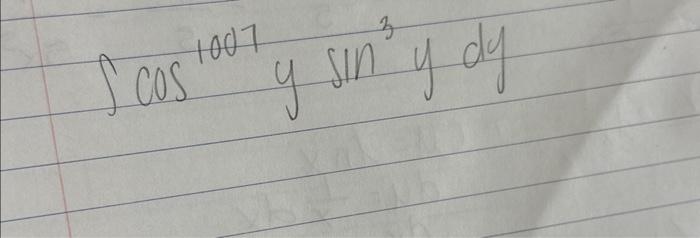 ∫ cos¹⁰⁰⁷ y sin³ y dy